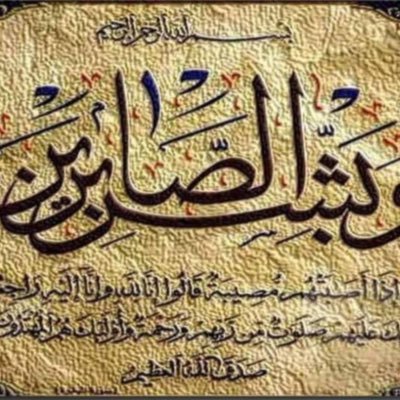 بسم الله الرحمن الرحيم
وَبَشِّرِ الصَّابِرِين
إذَا أَصَابَتْهُم مُصِيبَةٌ قَالُوا إِنَّا لِلَّهِ وَإِنَّا إِلَيْهِ رَاجِعُو
ك عَلَيْهِمْ صَلَوَاتٌ مِن رَبِّهِمْ وَرَحْمَةٌ وَأُولَئِكَ هُمُ الْمُهْتَدُون
صدق الله العظيم